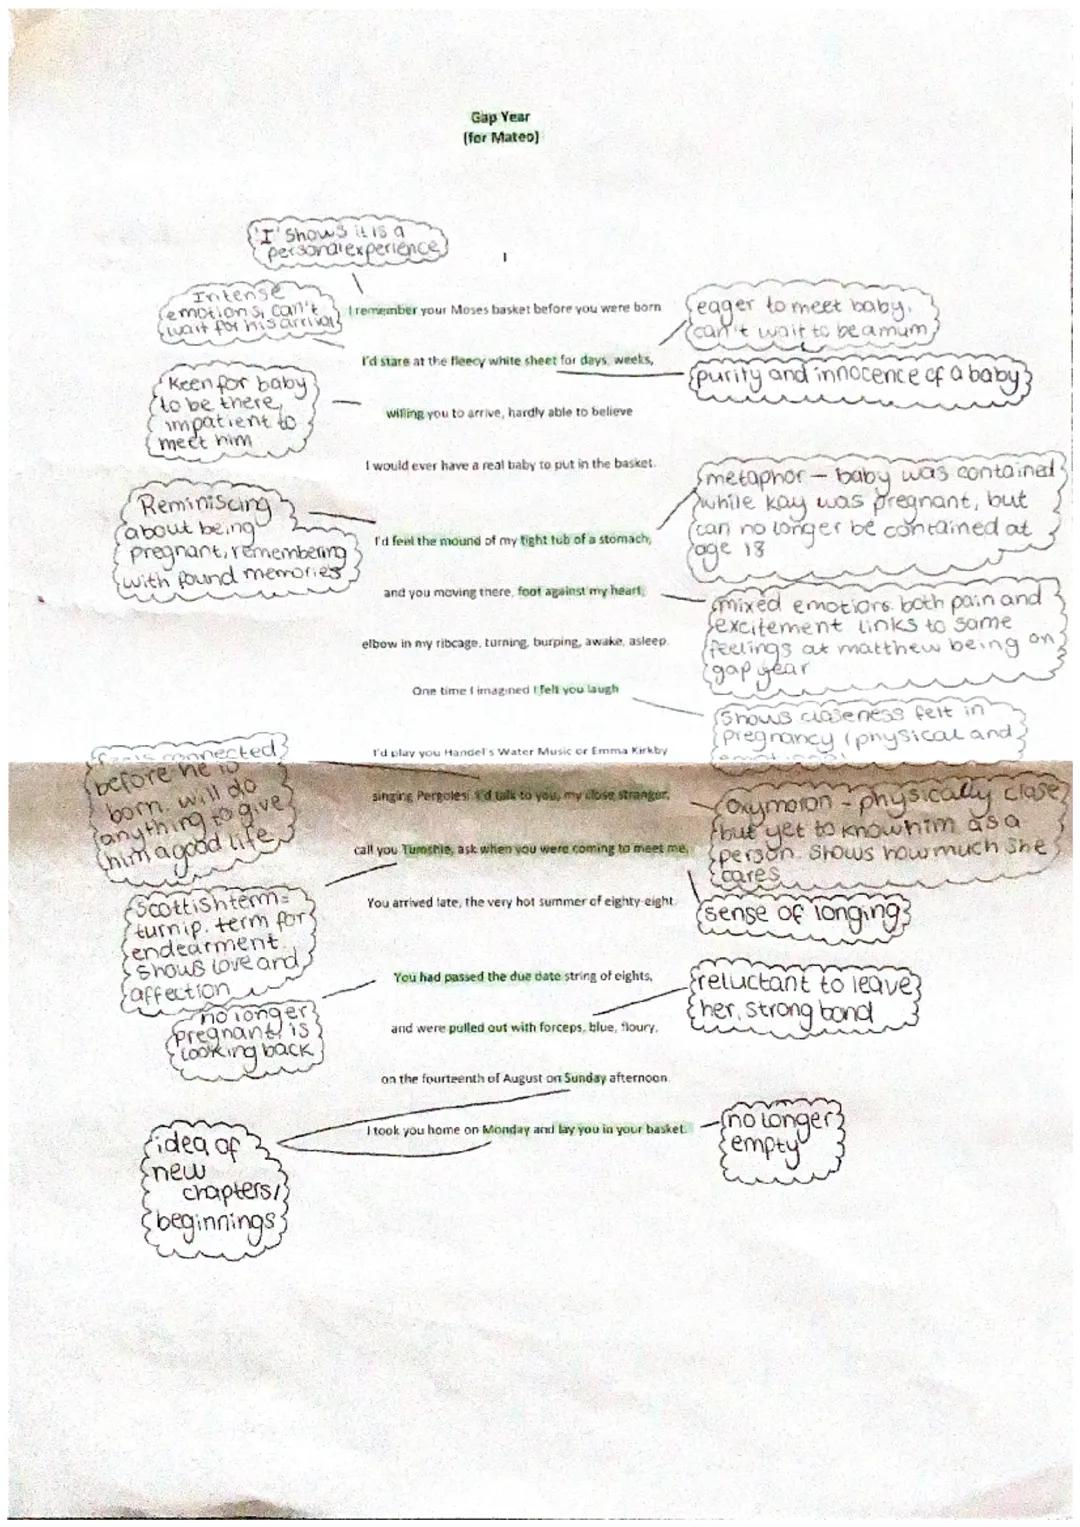 Gap Year
(for Mateo)
'I' shows it is a
personal experience
I
Intense
emotions, can't
wait for his arrival
I remember your Moses basket before you were born
eager to meet baby,
can't wait to be a mum
I'd stare at the fleecy white sheet for days, weeks,
purity and innocence of a baby
Keen for baby
to be there,
impatient to
meet him
willing you to arrive, hardly able to believe
I would ever have a real baby to put in the basket.
metaphor - baby was contained
while kay was pregnant, but
can no longer be contained at
age 18
Reminiscing
about being
pregnant, remembering
with found memories
I'd feel the mound of my tight tub of a stomach,
and you moving there, foot against my heart,
mixed emotions. both pain and
excitement links to same
feelings at matthew being on
gap year
elbow in my ribcage, turning, burping, awake, asleep.
One time I imagined I felt you laugh
Shows closeness felt in
pregnancy (physical and
I'd play you Handel's Water Music or Emma Kirkby
feels connected
before he is
born. will do
anything to give
him a good life
singing Pergolesi. I'd talk to you, my close stranger,
oxymoron - physically close
but yet to know him as a
person. Shows how much she
cares
call you Tumshie, ask when you were coming to meet me.
Scottish term=
turnip. term for
endearment.
Shows love and
affection
You arrived late, the very hot summer of eighty-eight.
sense of longing
You had passed the due date string of eights,
reluctant to leave
her, strong bond
no longer
pregnant, is
looking back
and were pulled out with forceps, blue, floury,
on the fourteenth of August on Sunday afternoon.
I took you home on Monday and lay you in your basket.
no longer
empty
idea of
new
chapters/
beginnings